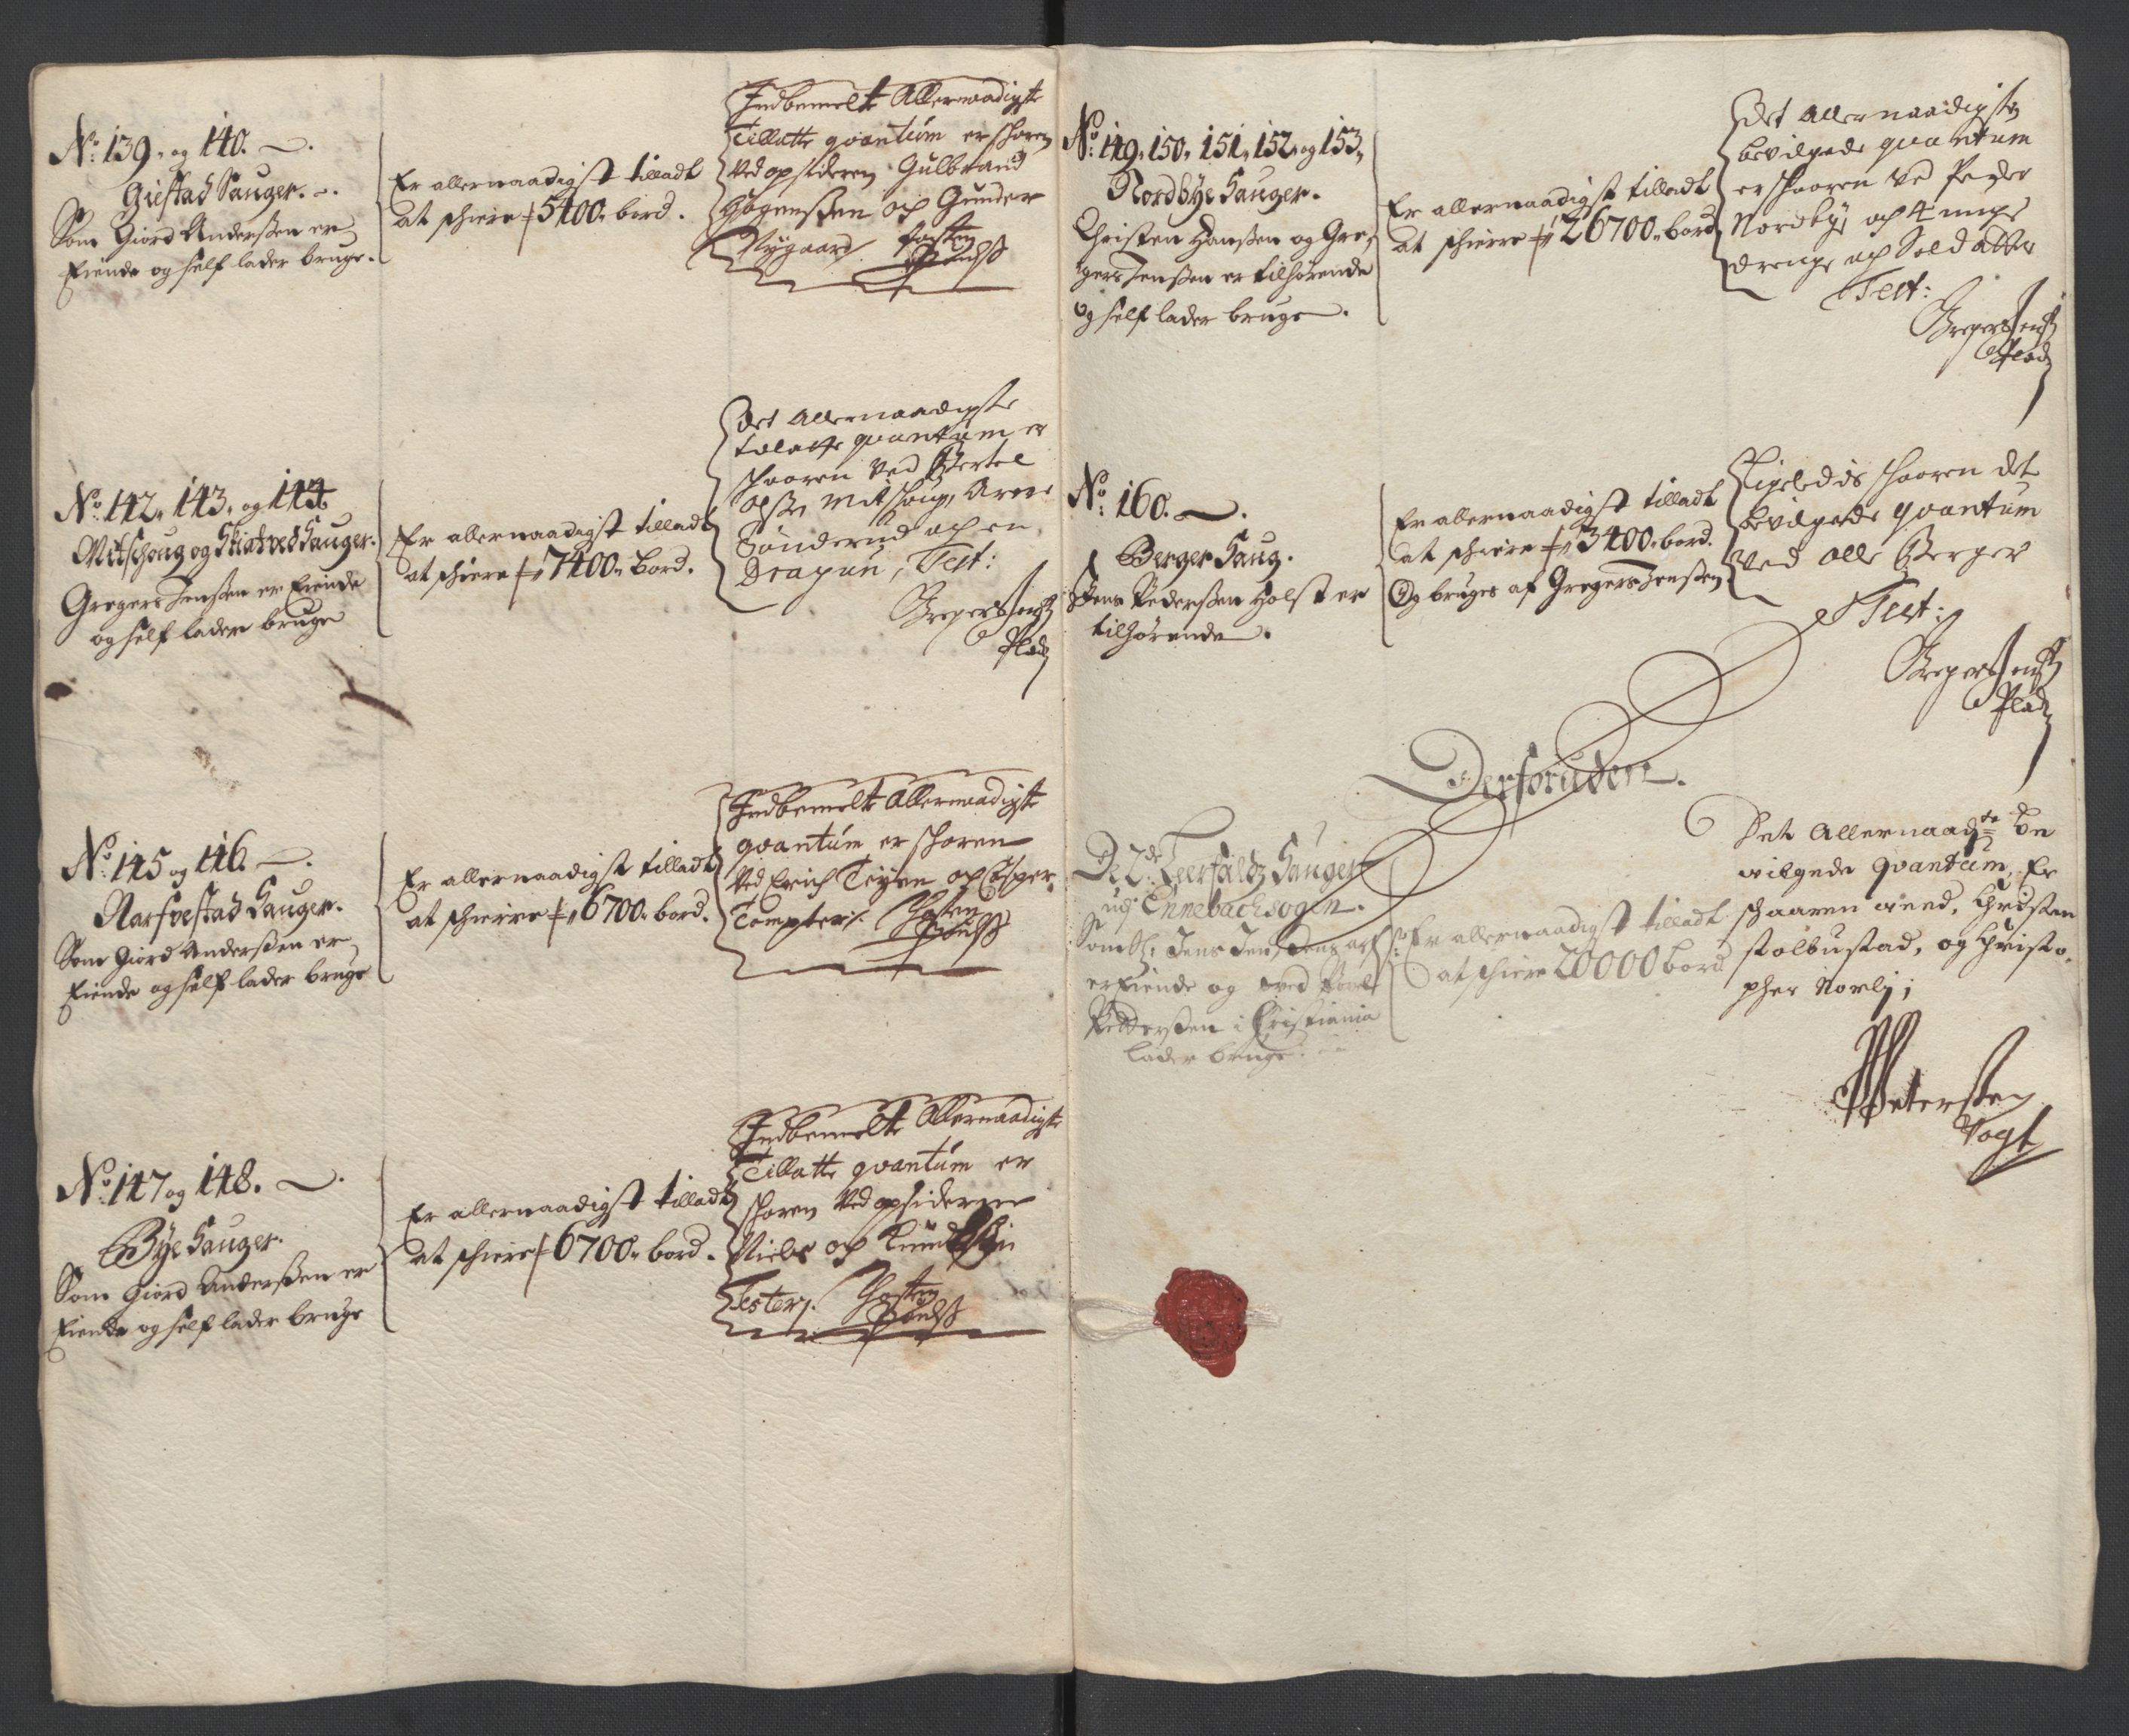 No: 139, og 140.
Giestad Sauger.
Som Giord Anderßen er
Eiende og self lader bruge.
Er allernaadigst tilladt
at schiere # 5400. bord.
Indbemelte Allernaadigste
Tillatte qvantum er schoren
Ved opsideren Gulbrand
Gogenßen och Gunder
Nygaard
No: 142, 143, og 144
Mitschoug og Skiatved Sauger.
Gregers Jenßen er Eiende
og self lader bruge
Er allernaadigst tilladt
at schiere # 7400. bord.
det allernaadigste
tilatte quantum er
schaaren ved Bertel
Mitschoug, Arne
Sønderud och en
Dragun, Test:
Gregers Jenß
Plad
No: 145 og 146.
Narfvestad Sauger.
Som Giord Anderßen er
Eiende og self lader bruge
Er allernaadigst tilladt
at schiere # 6700. bord.
Indbemelte Allernaadigste
qvantum er schoren
Ved Erich Teyen och Casper
Tompter.
No: 147 og 148.
Bye Sauger.
Som Giord Anderßen er
Eiende og self lader bruge
Er allernaadigst tilladt
at schiere # 6700. bord.
Indbemelte Allernaadigste
Tillatte qvantum er
schoren Ved opsiderne
Niels och Knud
Tester.
No: 149, 150, 151, 152, og 153,
Nordbye Sauger.
Christen Hanßen og Gre-
gers Jenßen er tilhørende
og self lader bruge.
Er allernaadigst tilladt
at schiere # 26700. bord
det allernaadigste
bevilgede quantum
er schaaren ved Peder
Nordby och 4 unge
drenge och Soldatter
Test:
Gregers Jenß
Plad
No: 160.
Berger Saug.
Jens Pederßen Holst er
tilhørende.
Er allernaadigst tilladt
at schiere # 3400. bord.
Og bruges af Gregers Jenßen
Ligeledis schaaren det
bevilgede qvantum
ved Olle Berger
Test:
Gregers Jenß
Plad
Derforuden.
De 2de Leerfaldz Sauger
udj Ennebachsogen.
Som Sl: Jens Jens
er Eiende og ved Povel
Pedderßen i Christiania
lader bruge.
Er allernaadigst tilladt
at schiere 20000 bord
Det Allernaadste be
wilgede qvantum, Er
schaaren weed, Christen
stolbustad, og Christo,
pher Norby;
Peterßen
Vogt